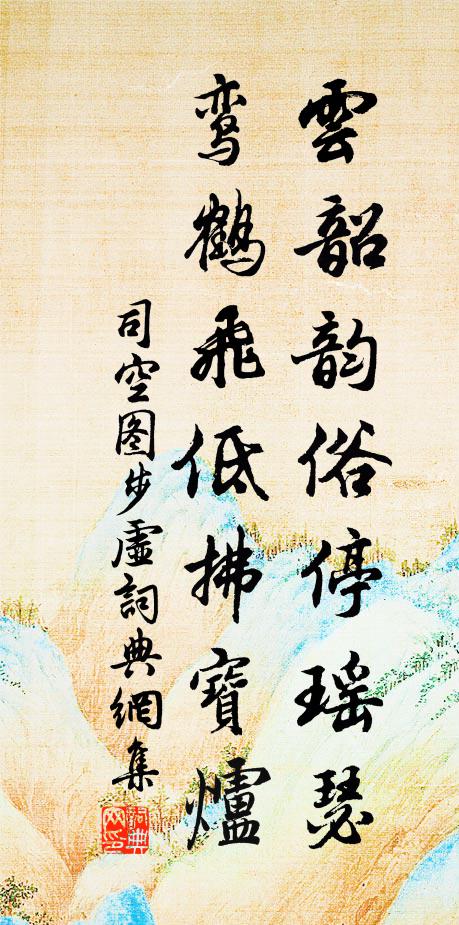 雲韶韵俗停瑶瑟
鸾鶴飛低拂寶爐
司空图步虛詞典網集
詞典網印